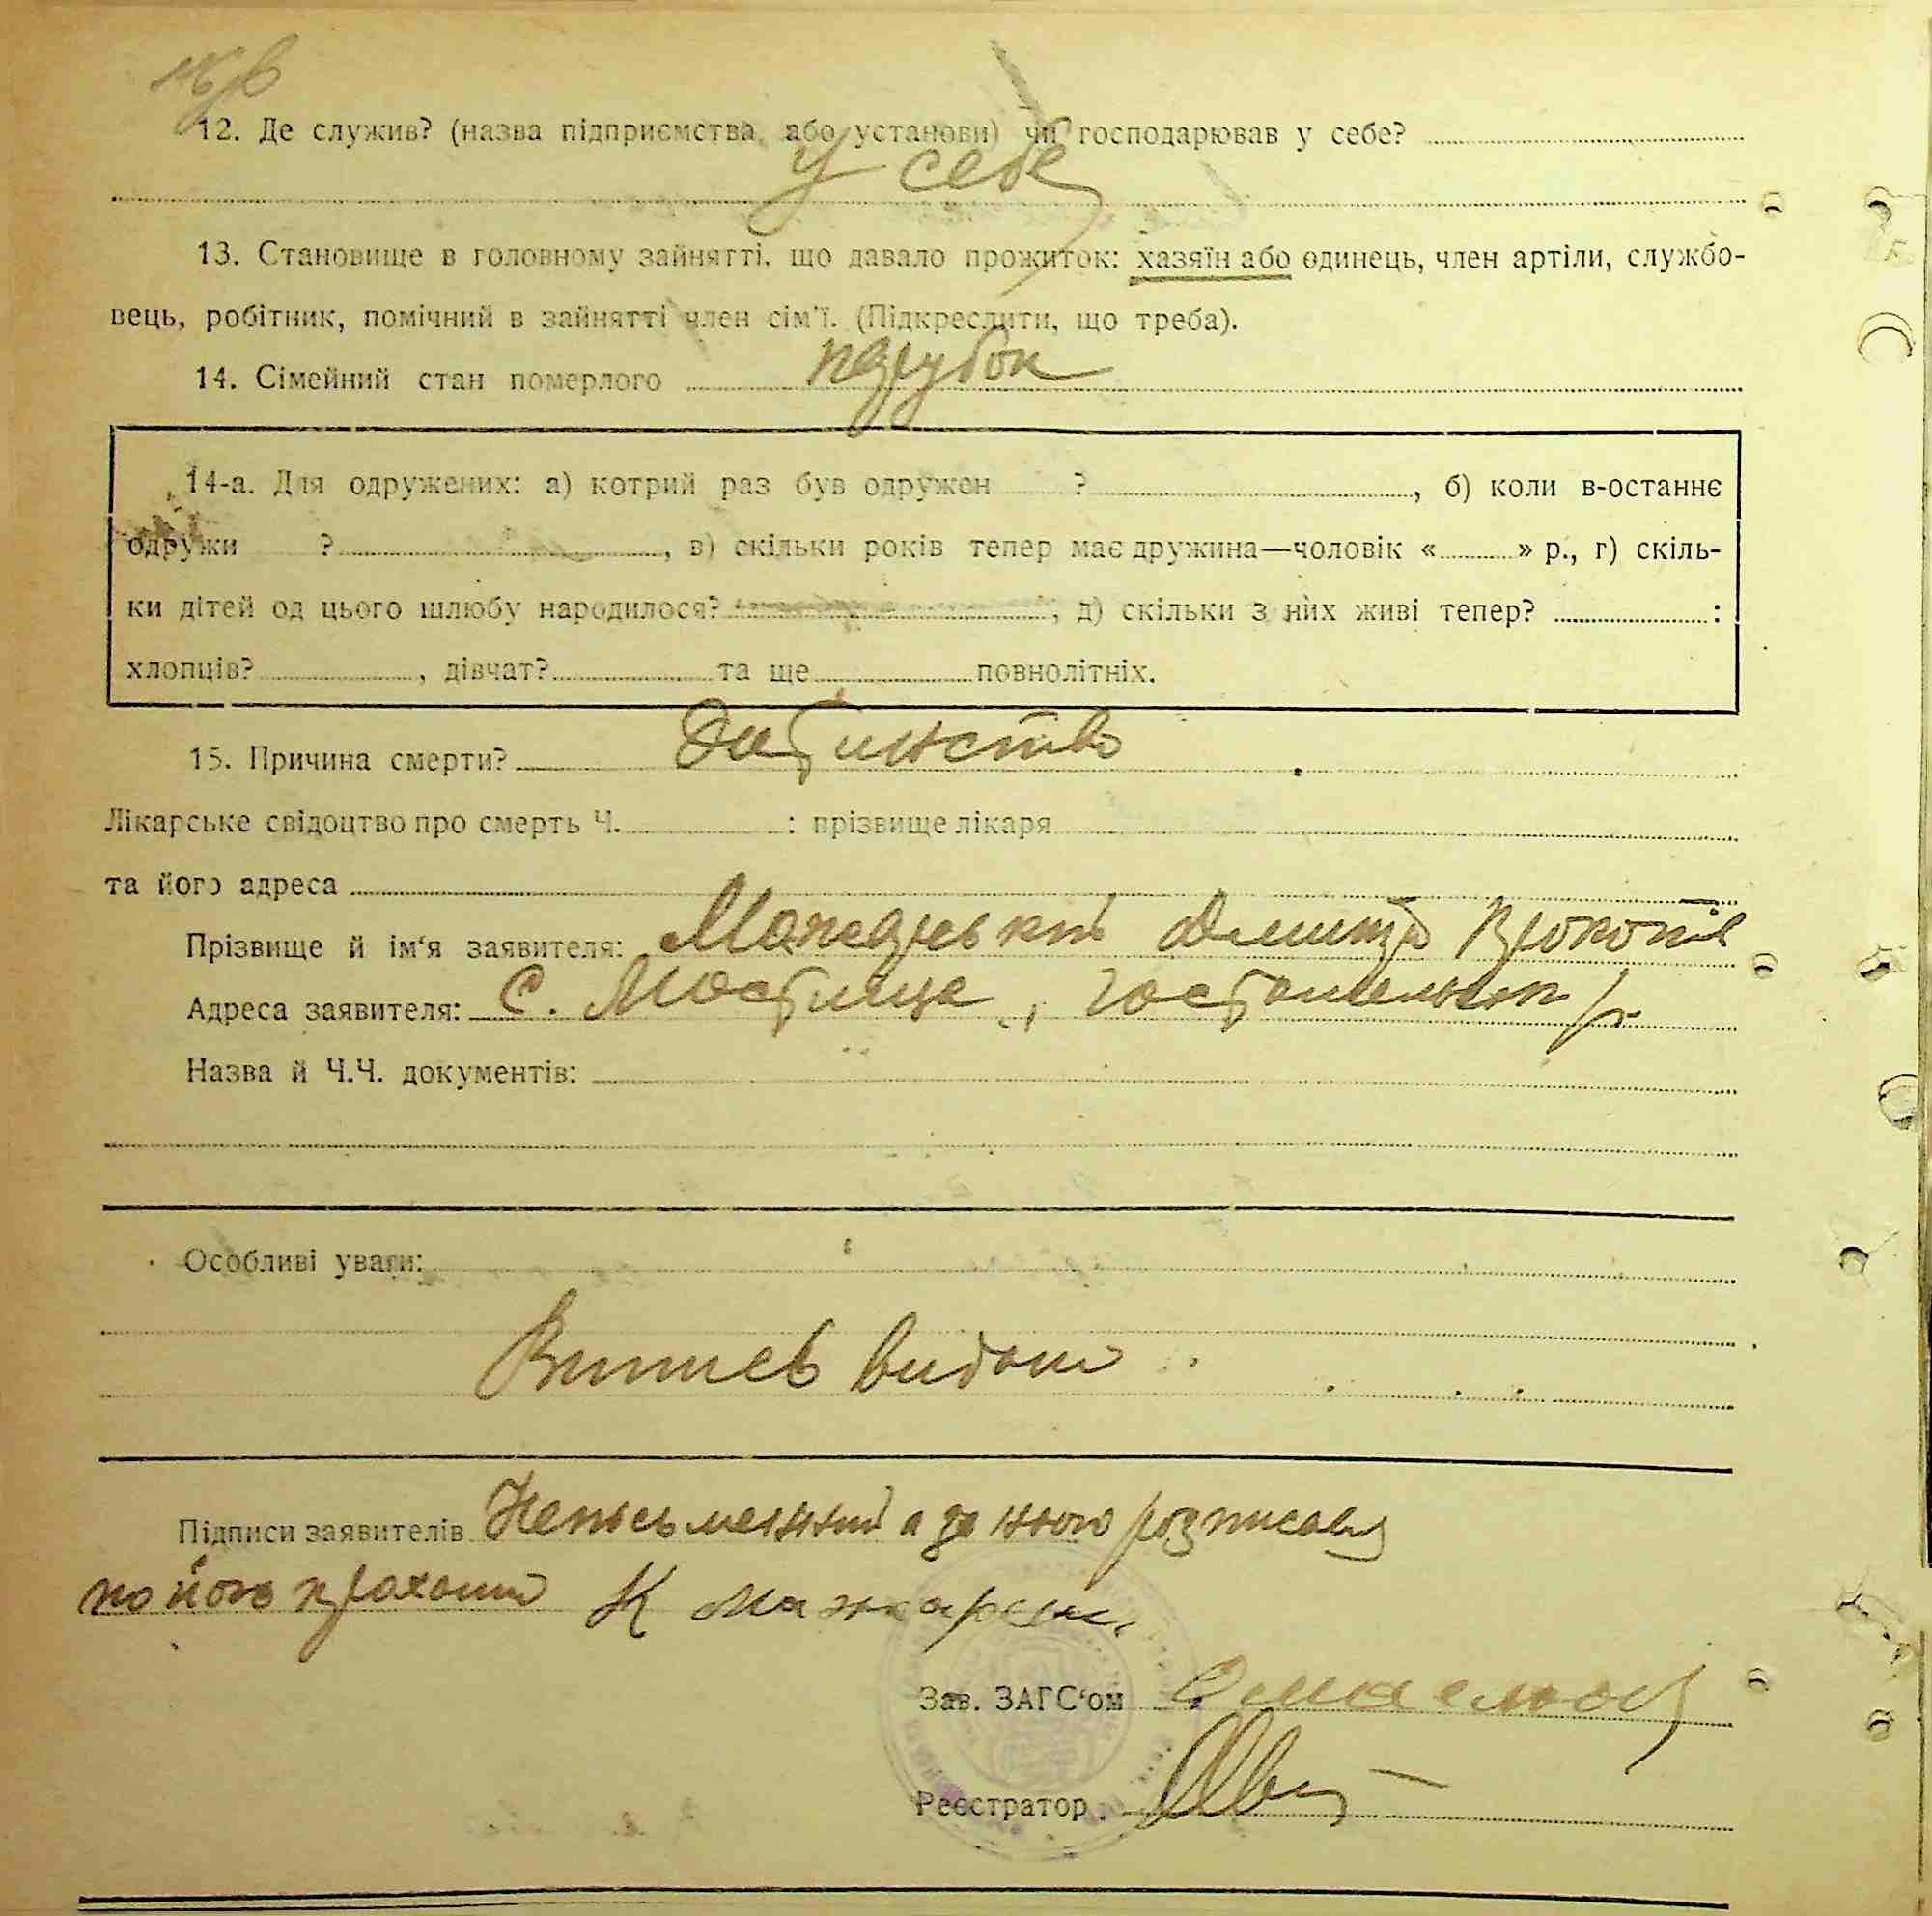 12. Де служив? (назва підприємства або установи) чи господарював у себе?
у себе
13. Становище в головному зайнятті, що давало прожиток: хазяїн або одинець, член артіли, службо-
вець, робітник, помічний в зайнятті член сім'ї. (Підкреслити, що треба).
14. Сімейний стан померлого парубок
14-а. Для одружених: а) котрий раз був одружен ? , б) коли в-останнє
одружи ? , в) скільки років тепер має дружина—чоловік « » р., г) скіль-
ки дітей од цього шлюбу народилося? , д) скільки з них живі тепер? :
хлопців? , дівчат? та ще повнолітніх.
15. Причина смерти?
Лікарське свідоцтво про смерть Ч. : прізвище лікаря
та його адреса
Прізвище й ім'я заявителя: Прокопів
Адреса заявителя: С. Мостище, Гостомельськ р.
Назва й Ч.Ч. документів:
Особливі уваги:
Витяг видано
Підписи заявителів Неписьменний а за нього розписавсь
по його проханню К
Зав. ЗАГС'ом
Реєстратор.